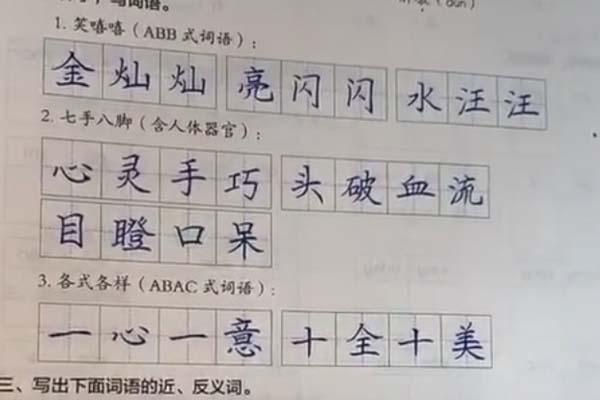 写词语。
1. 笑嘻嘻（ABB 式词语）：
金灿灿 亮闪闪 水汪汪
2. 七手八脚（含人体器官）：
心灵手巧 头破血流
目瞪口呆
3. 各式各样（ABAC 式词语）：
一心一意 十全十美
三、写出下面词语的近、反义词。